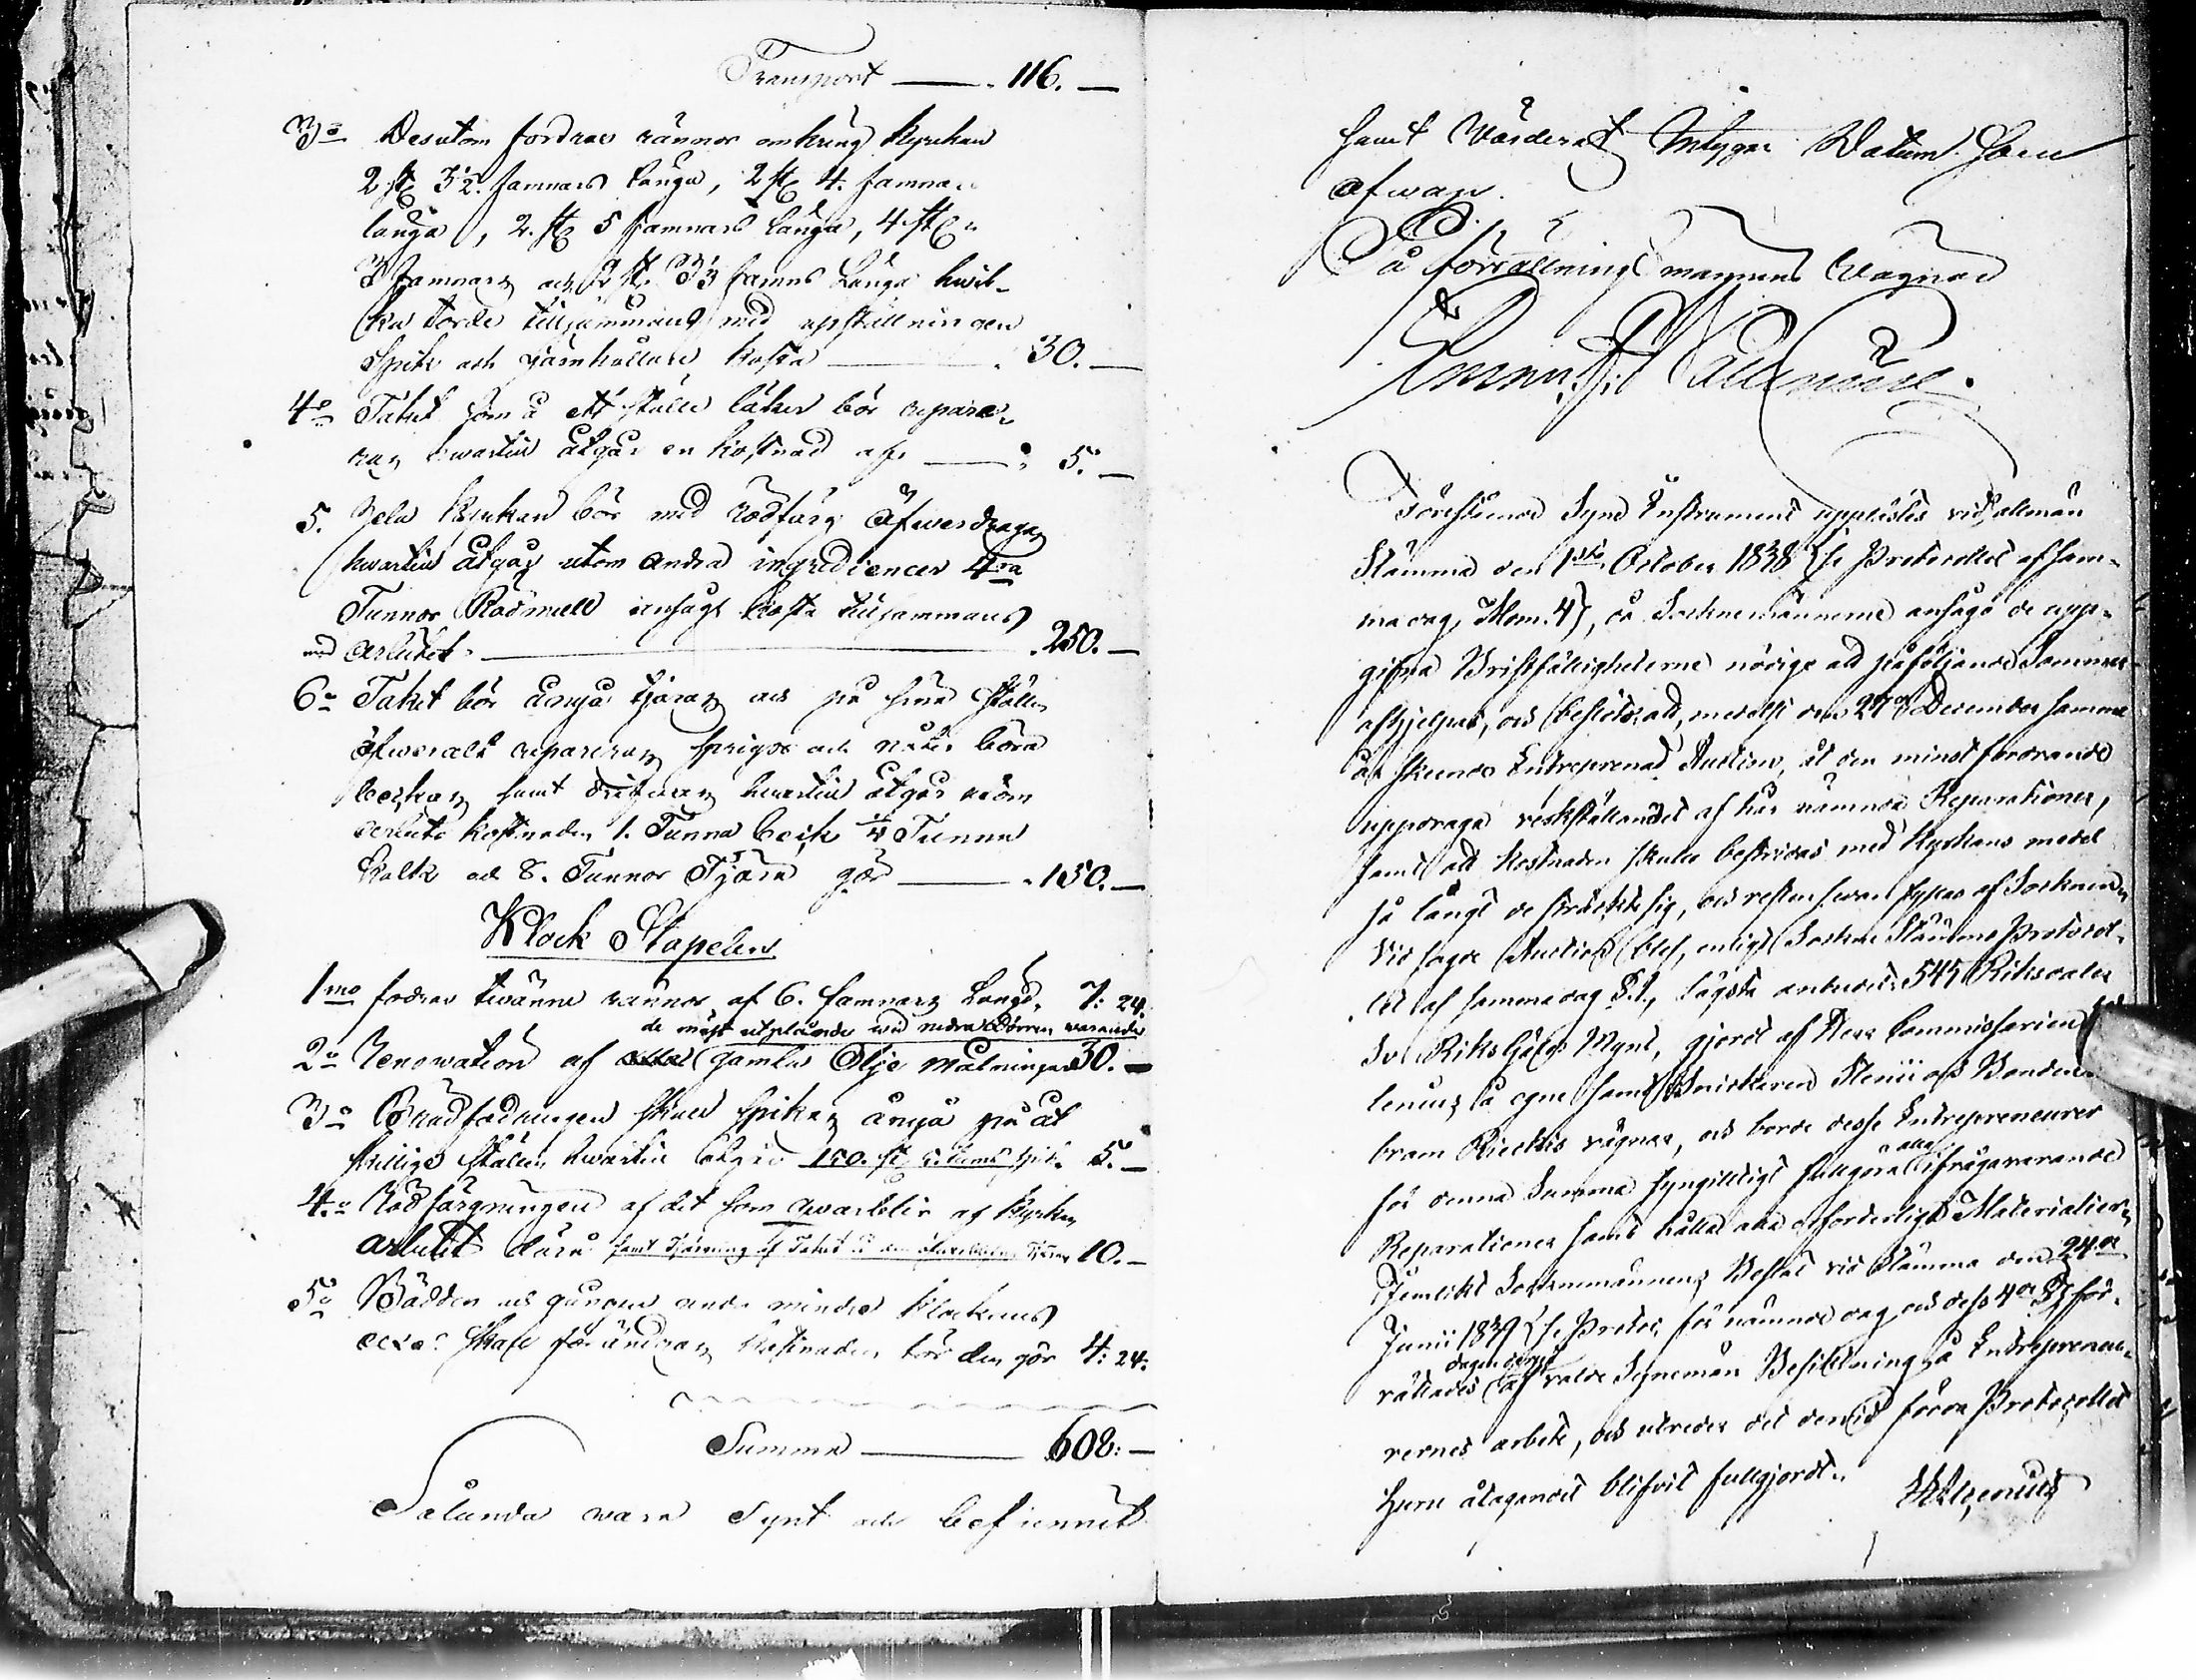 Transport ——— 116. —
3o Desutom fordras rännor omkring Kyrkan
2 st 3 1/2 famnars långa, 2 st 4. famnars
långa, 2. st 5 famnars långa, 4. st
3 famnars och 2 st. 3 1/3 famns långa hvil-
ka torde tillsammans med upställningen
Spik och Järnhållare kosta ——— 30. —
4o Taket som å ett ställe läker bör repare-
ras hvartill åtgår en kostnad af ——— 5. —
5. Hela Kyrkan bör med rödfärg öfverdragas
hvartill åtgår utom andra ingrediencer 4ra
Tunnor Rödmull ansågs kosta tillsammans
med arbetet ——— 250. —
6o Taket bör ånyo tjäras och på sina ställen
öfveralt repareras springor och nåter böra
beckas samt drifvas hvartill åtgår utom
arbets kostnaden 1. Tunna beck 1/4 Tunna
Kalk och 8. Tunnor Tjära gör ——— 150. —
Klock Stapelen
1mo fodras tvänne rännor af 6. famnars Längd. 7: 24.
de mäst utplånade vid nedra Dörren varande
2o Renovation af gamla Olje målningar 30. —
3o Brädfodringen skall spikas ånyo på åt
skillige ställen hvartill åtgår 150. st spik 5. —
4o Rödfärgningen af det som qvarblir af Kyrkan
arbetet dära samt tjärning af Taket 10. —
5o mindre Klockans
skall förändras kostnaden här den gör 4: 24.
Summa ——— 608: —
Sålunda vara Synt och befunnit
samt Värderat Intygar Datum som
ofvan.
På förrättningsmannens vägnar
Förestående Syne Instrument upplästes vid allmän
Stämma den 1sta October 1838 (se Protocollet af sam-
ma dag, Mom. 4), då Sockenmännerne ansågo de upp-
gifna Bristfälligheterne nödige att påföljande Sommar
afhjelpas, och beslöts att, medelst den 27de December samma
år skeende Entreprenad Auction, åt den minst fordrande
uppdraga verkställandet af här nämnde Reparationer,
samt att kostnaden skulle bestridas med Kyrkans medel
så långt de sträckte sig, och resten fyllas af Socknen.
Vid sagde Auction blef, enligt Sockne Stämmo Protocol-
let af samma dag §.1., lägsta anbudet 545 Riksdaler
Sv. Riksgälds Mynt, gjordt af Herr Commissarien
å egne samt Snickaren och Bonden
vägnar, och borde desse Entrepreneurer
för denna Summa fullgöra alla ifrågavarande
Reparationer samt hålla alla erforderliga Materialier.
Jemlikt Sockenmännens Beslut vid Stämma den 24de
Junii 1839 (se Protoc. för nämnde dag och dess 4de §) för-
rättades af valde Synemän Besiktning å Entreprenen-
rernes arbete, och utreder det dervid förde Protocollet
huru åtagandet blifvit fullgjordt.